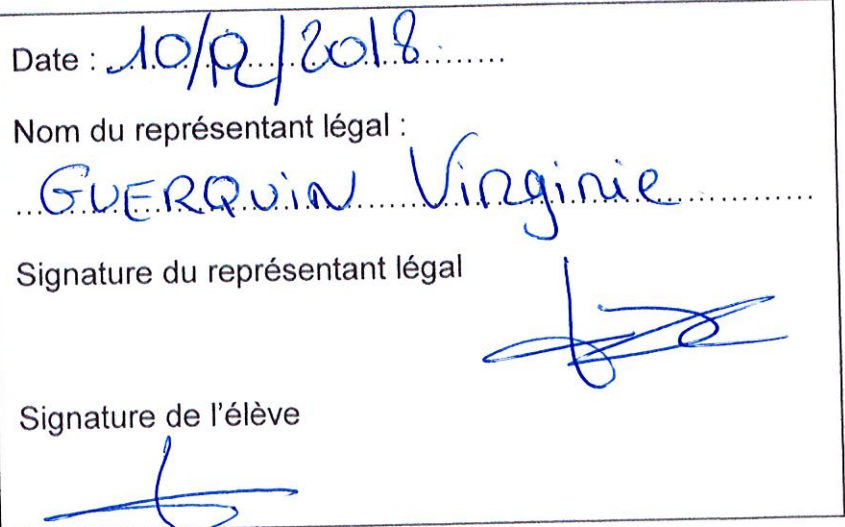 Date : 10/12/2018
Nom du représentant légal :
GUERQUIN Virginie
Signature du représentant légal
Signature de l'élève